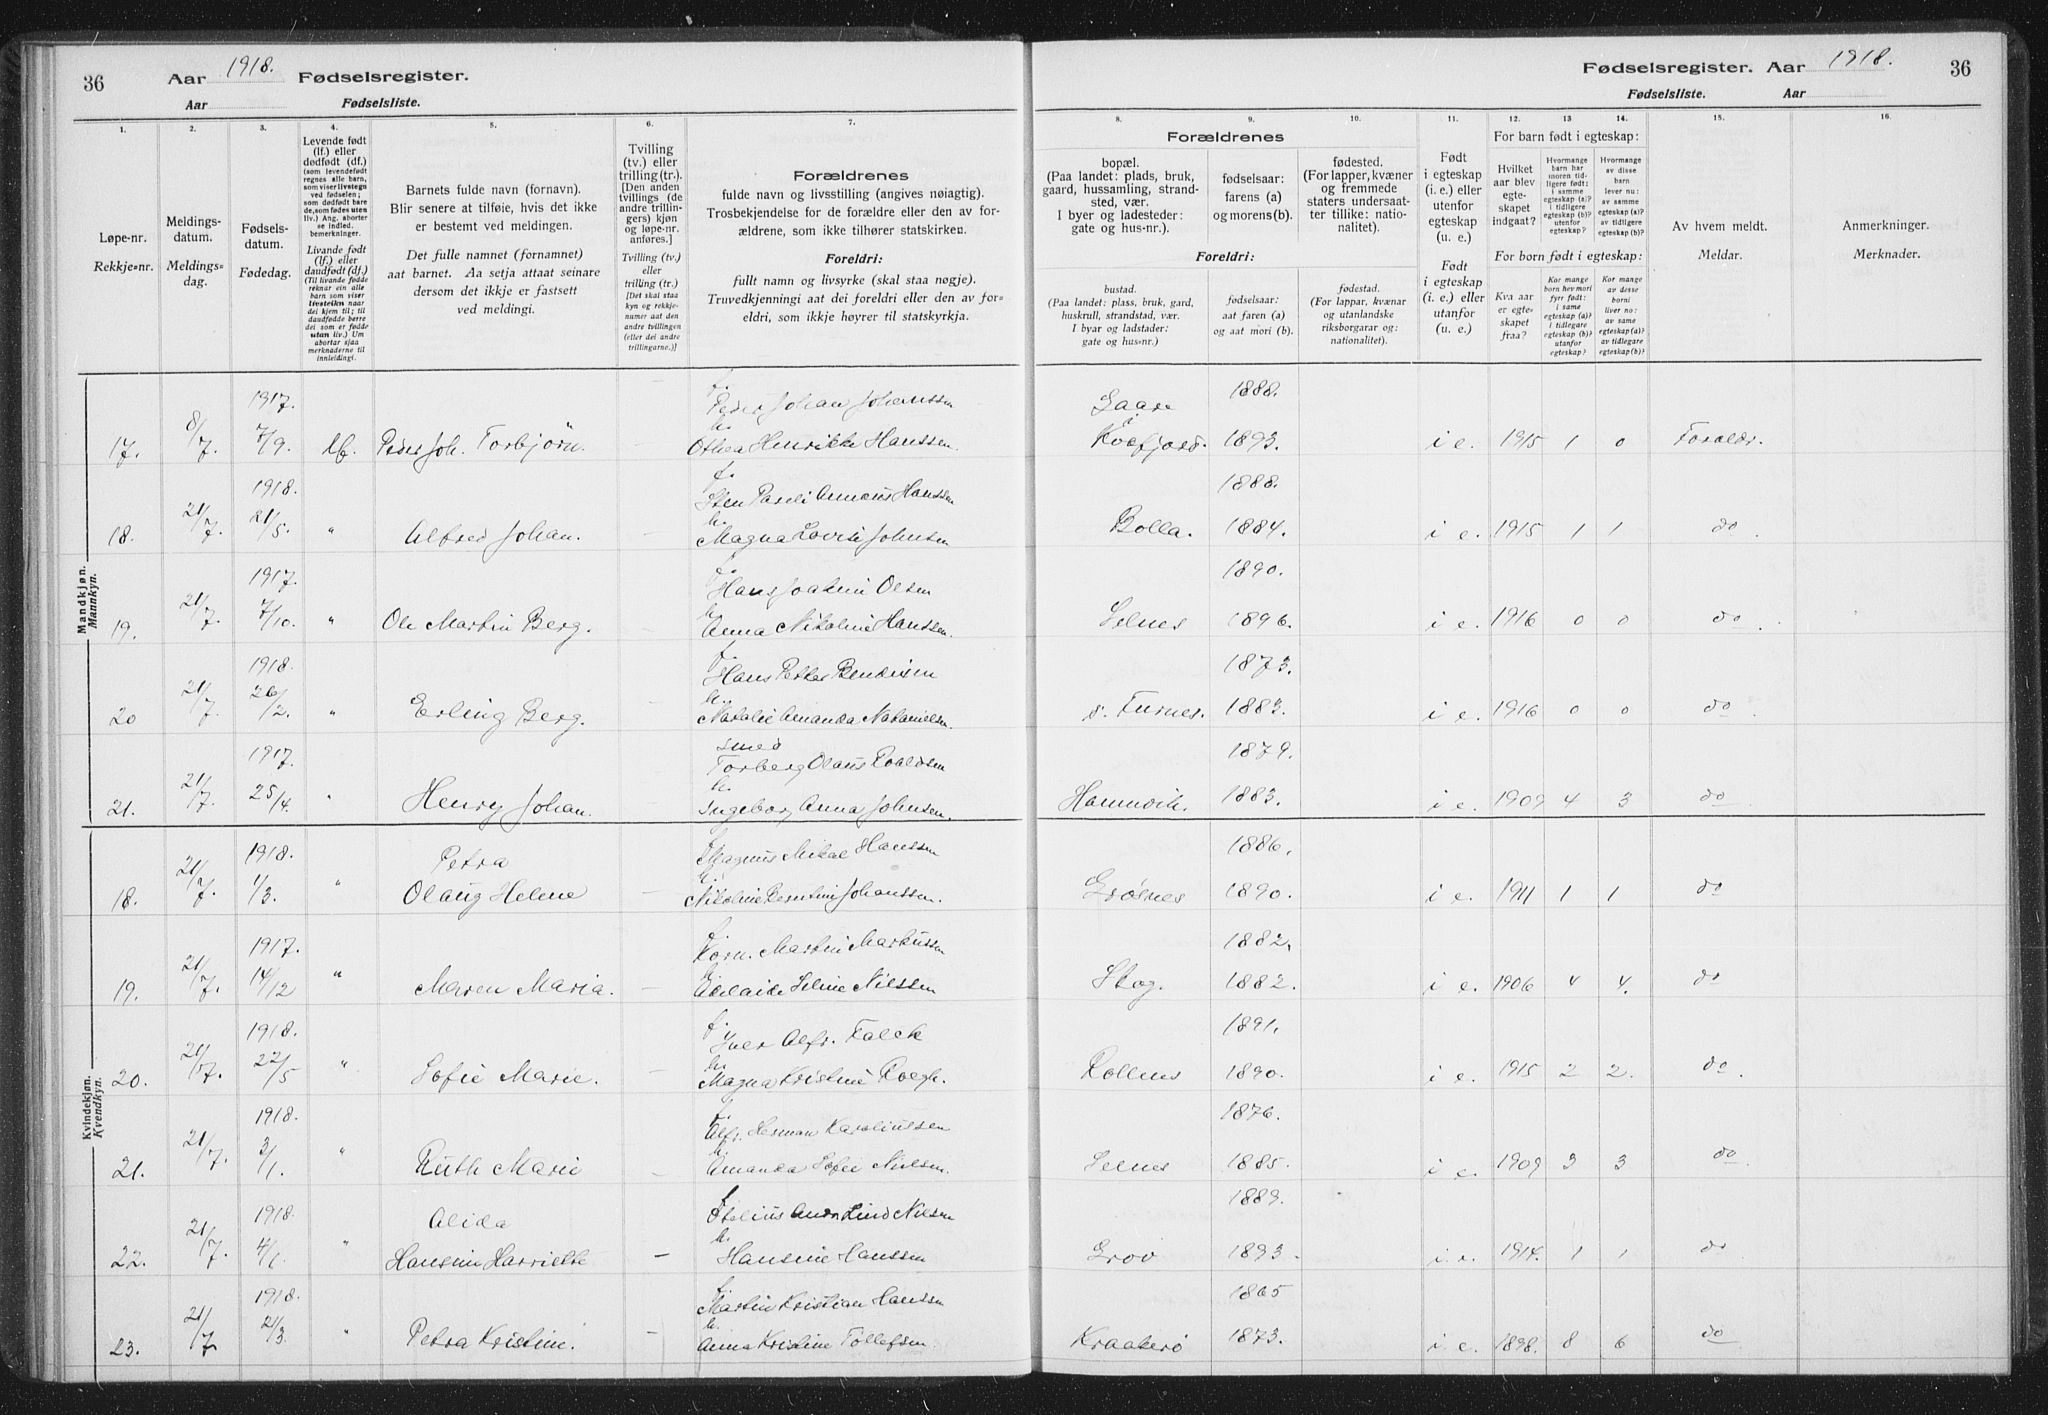 36 Aar 1918. Fødselsregister.
Aar Fødselsliste.
Fødselsregister. Aar 1918. 36
Fødselsliste. Aar
1. 2. 3. 4. 5. 6. 7.
Løpe-nr.
Rekkje=nr.
Meldings-
datum.
Meldings=
dag.
Fødsels-
datum.
Fødedag.
Levende født
(lf.) eller
dødfødt (df.)
(som levendefødt
regnes alle barn,
som viser livstegn
ved fødselen;
som dødfødt bare
de, som fødes uten
liv.) Ang. aborter
se indled.
bemerkninger.
Livande født
(lf.) eller
daudfødt (df.)
(Til livande fødde
reknar ein alle
barn som viser
livsteikn naar
dei kjem til; til
daudfødde berre
dei som er fødde
utan liv.) Um
abortar sjaa
merknaderne til
innleidingi.
Barnets fulde navn (fornavn).
Blir senere at tilføie, hvis det ikke
er bestemt ved meldingen.
Det fulle namnet (fornamnet)
aat barnet. Aa setja attaat seinare
dersom det ikkje er fastsett
ved meldingi.
Tvilling
(tv.) eller
trilling (tr.).
[Den anden
tvillings (de
andre trillin-
gers) kjøn
og løpe-nr.
anføres.]
Tvilling (tv.)
eller
trilling (tr.)
[Det skal staa
kyn og rekkje-
numer aat den
andre tvillingen
(eller dei andre
trillingarne.)]
Forældrenes
fulde navn og livsstilling (angives nøiagtig).
Trosbekjendelse for de forældre eller den av for-
ældrene, som ikke tilhører statskirken.
Foreldri:
fullt namn og livsyrke (skal staa nøgje).
Truvedkjenningi aat dei foreldri eller den av for-
eldri, som ikkje høyrer til statskyrkja.
8. 9. 10. 11. 12. 13 14. 15. 16.
Forældrenes
bopæl.
(Paa landet: plads, bruk,
gaard, hussamling, strand-
sted, vær.
I byer og ladesteder:
gate og hus-nr.).
fødselsaar:
farens (a)
og morens (b).
fødested.
(For lapper, kvæner
og fremmede
staters undersaat-
ter tillike: natio-
nalitet).
Foreldri:
bustad.
(Paa landet: plass, bruk, gard,
huskrull, strandstad, vær.
I byar og ladstader:
gate og hus=nr.)
fødselsaar:
aat faren (a)
og aat mori (b).
fødestad.
(For lappar, kvænar
og utanlandske
riksborgarar og:
nationalitet).
Født
i egteskap
(i. e.) eller
utenfor
egteskap
(u. e.)
Født
i egteskap
(i. e.) eller
utanfor
(u. e.)
For barn født i egteskap:
Hvilket
aar blev
egte-
skapet
indgaat?
Hvormange
barn har
moren tid-
ligere født:
i samme
egteskap (a)?
i tidligere
egteskap (b)?
utenfor
egteskap?
Hvormange
av disse
barn
lever nu:
av samme
egteskap (a)?
av tidligere
egteskap (b)?
For born født i egteskap:
Kva aar
er egte-
skapet
fraa?
Kor mange
born hev mori
fyrr født:
i same
egteskap (a)?
i tidlegare
egteskap (b)?
utanfor
egteskap?
Kor mange
av desse
borni
liver no:
av same
egteskap (a)?
av tidlegare
egteskap (b)?
Av hvem meldt.
Meldar.
Anmerkninger.
Merknader.
Mandkjøn.
Mannkyn.
17. 8/7. 1917. 7/9. lf. Peder Joh. Torbjørn.
f. Peder Johan Johanssen
h. Othea Henrikke Hanssen.
Gaare i Kvæfjord. 1888. 1893. i e. 1915 1 0 Foreldr.
18. 21/7. 1918. 21/5. " Alfred Johan. —
f. Sten Pareli Hanssen
h. Magna Lovise Johnsen
Bolla. 1888. 1884. i e. 1915 1 1 do
19. 21/7. 1917. 7/10. " Ole Martin Berg. —
f. Hans Joakim Olsen
h. Anna Nikoline Hanssen.
Selnes 1890. 1896. i e. 1916 0 0 do
20 21/7. 1918. 26/2. " Erling Berg. —
f. Hans Petter Bendixen
h. Natalie Amanda Natanielsen
s. Furnes. 1873. 1883. i e. 1916 0 0 do
21. 21/7. 1917. 25/4. " Henry Johan. —
smed Torberg Olaus Roaldsen
h. Ingeborg Anna Johnsen.
Hamnvik. 1879. 1883. i e. 1909 4 3 do
Kvindekjøn.
Kvendkyn.
18. 21/7. 1918. 1/3. " Petra Olaug Helene —
f. Magnus Mikal Hanssen
h. Nikoline Berntine Johanssen.
Grøsnes 1886. 1890. i e. 1911 1 1 do
19. 21/7. 1917. 14/12 " Maren Maria. —
f. Korn. Martin Markussen
h. Adelaide Seline Nilssen
Skog. 1882. 1882. i e. 1906 4 4. do
20. 21/7. 1918. 22/5 " Sofie Marie. —
f. Iver Alfr. Falck
h. Magna Kristine Kregh.
Rollnes 1891. 1890. i e. 1915 2 2. do
21. 21/7. 1918. 3/1. " Ruth Marie —
f. Alfr. Herman Karoliussen
h. Amanda Sofie Nielsen.
Selnes 1876. 1885. i e. 1909 3 3 do
22. 21/7. 1918. 4/1. " Alida Hansine Harriette —
f. Otelius Andr. Lind Nilsen
h. Hansine Hanssen
Grov 1889. 1893. i. e. 1914. 1 1 do
23. 21/7. 1918. 21/3. " Petra Kristine. —
f. Martin Kristian Hanssen
h. Anna Kristine Tollefsen.
Kraakerø 1865 1873. i e. 1898. 8 6 do